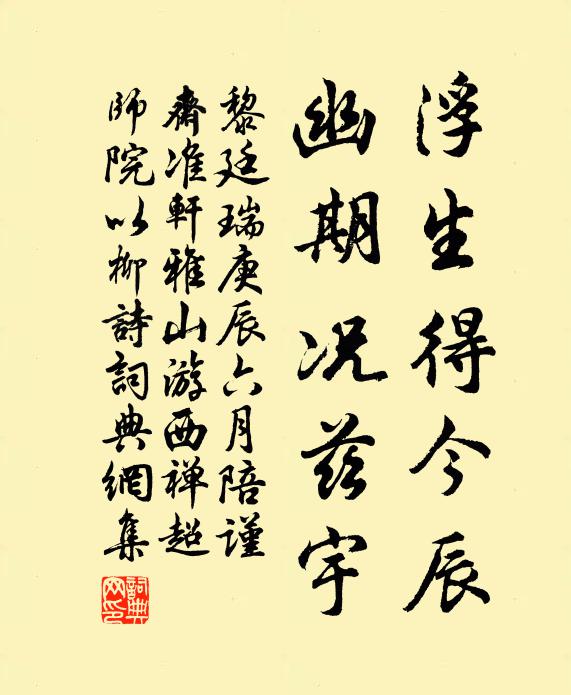 浮生得今辰
幽期况茲宇
黎廷瑞庚辰六月陪謹
齋准軒雅山游西禅超
師院以柳詩詞典網集
詞典网印